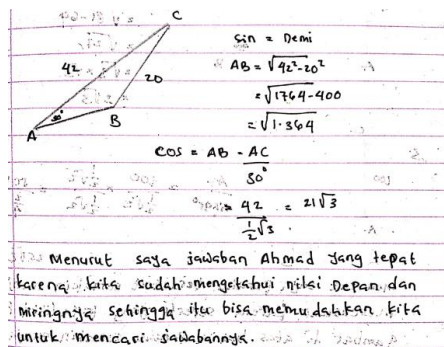 C
Sin = Demi
42
20
AB = √42²-20²
= √1764-400
= √1.364
30°
A
B
COS = AB = AC
30°
= 42 = 21√3
½√3
Menurut saya jawaban Ahmad yang tepat
karena kita sudah mengetahui nilai Depan dan
miringnya sehingga itu bisa memudahkan kita
untuk mencari jawabannya.